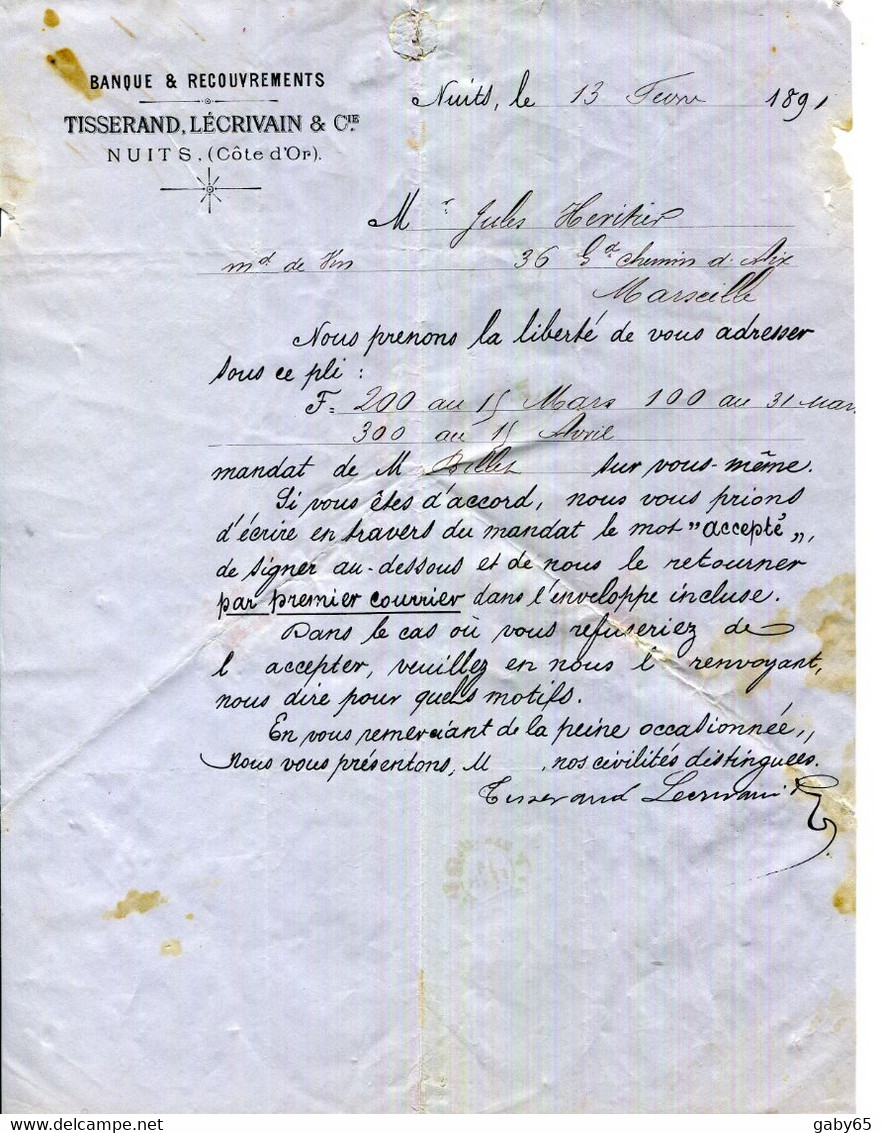 BANQUE & RECOUVREMENTS
TISSERAND, LÉCRIVAIN & CIE
NUITS. (Côte d'Or).
Nuits, le 13 Fevr 1891
Mr Jules Heritier
md de Vin 36 Gd chemin d'Aix
Marseille
Nous prenons la liberté de vous adresser
sous ce pli :
F= 200 au 15 Mars 100 au 31 Mars
300 au 15 Avril
mandat de M sur vous-même.
Si vous êtes d'accord, nous vous prions
d'écrire en travers du mandat le mot "accepté",
de signer au-dessous et de nous le retourner
par premier courrier dans l'enveloppe incluse.
Dans le cas où vous refuseriez de
l accepter, veuillez en nous l renvoyant,
nous dire pour quels motifs.
En vous remerciant de la peine occasionnée,
Nous vous présentons, M , nos civilités distinguées.
Tisserand Lecrivain
delcampe.net
gaby65